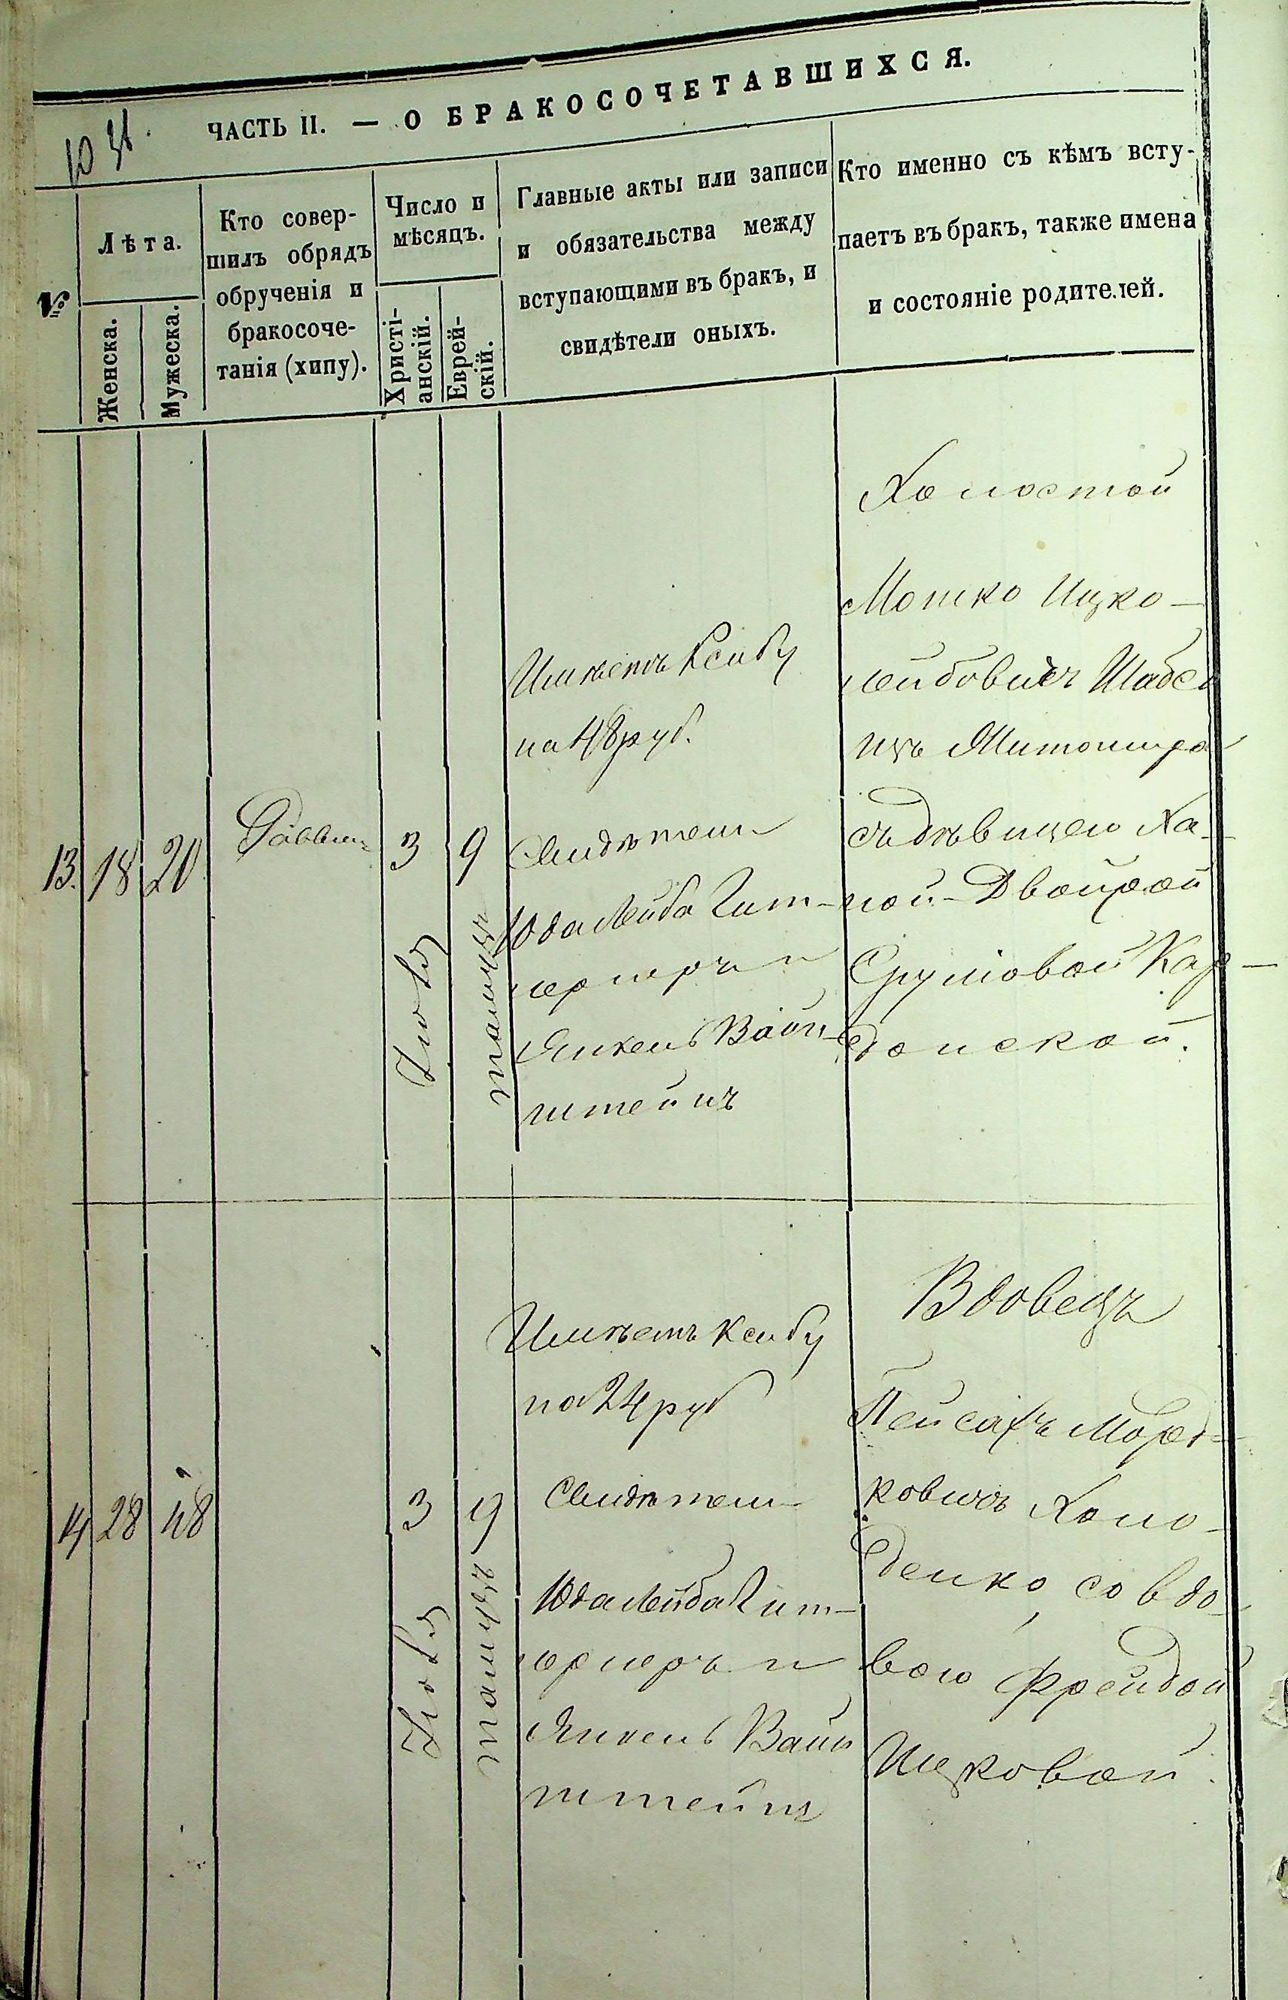 ЧАСТЬ II. — О БРАКОСОЧЕТАВШИХСЯ.
№
Лѣта.
Женска.
Мужеска.
Кто совер-
шилъ обрядъ
обрученія и
бракосоче-
танія (хипу).
Число и
мѣсяцъ.
Христі-
анскій.
Еврей-
скій.
Главные акты или записи
и обязательства между
вступающими въ бракъ, и
свидѣтели оныхъ.
Кто именно съ кѣмъ всту-
паетъ въ бракъ, также имена
и состояніе родителей.
13.
18
20
Раввин
3
Іюля
9
тамузъ
Имѣетъ Ксибу
на 48 руб.
Свидѣтели
Юда Лейба Гит-
лерлеръ и
Янкель Вайн-
штейнъ
Холостой
Мошко Ицко-
лейбовичъ
съ дѣвицею Ха-
ной-Двойрой
Срулiовой Кар-
донской.
14
28
48
3
Іюля
9
тамузъ
Имѣетъ Ксибу
на 24 руб
Свидѣтели
Юда Лейба Гит-
лерлеръ и
Янкель Вайн
штейнъ
Вдовецъ
Пейсахъ Морд-
ковичъ Холо-
денко, со вдо-
вою Фрейдой
Ицковой.